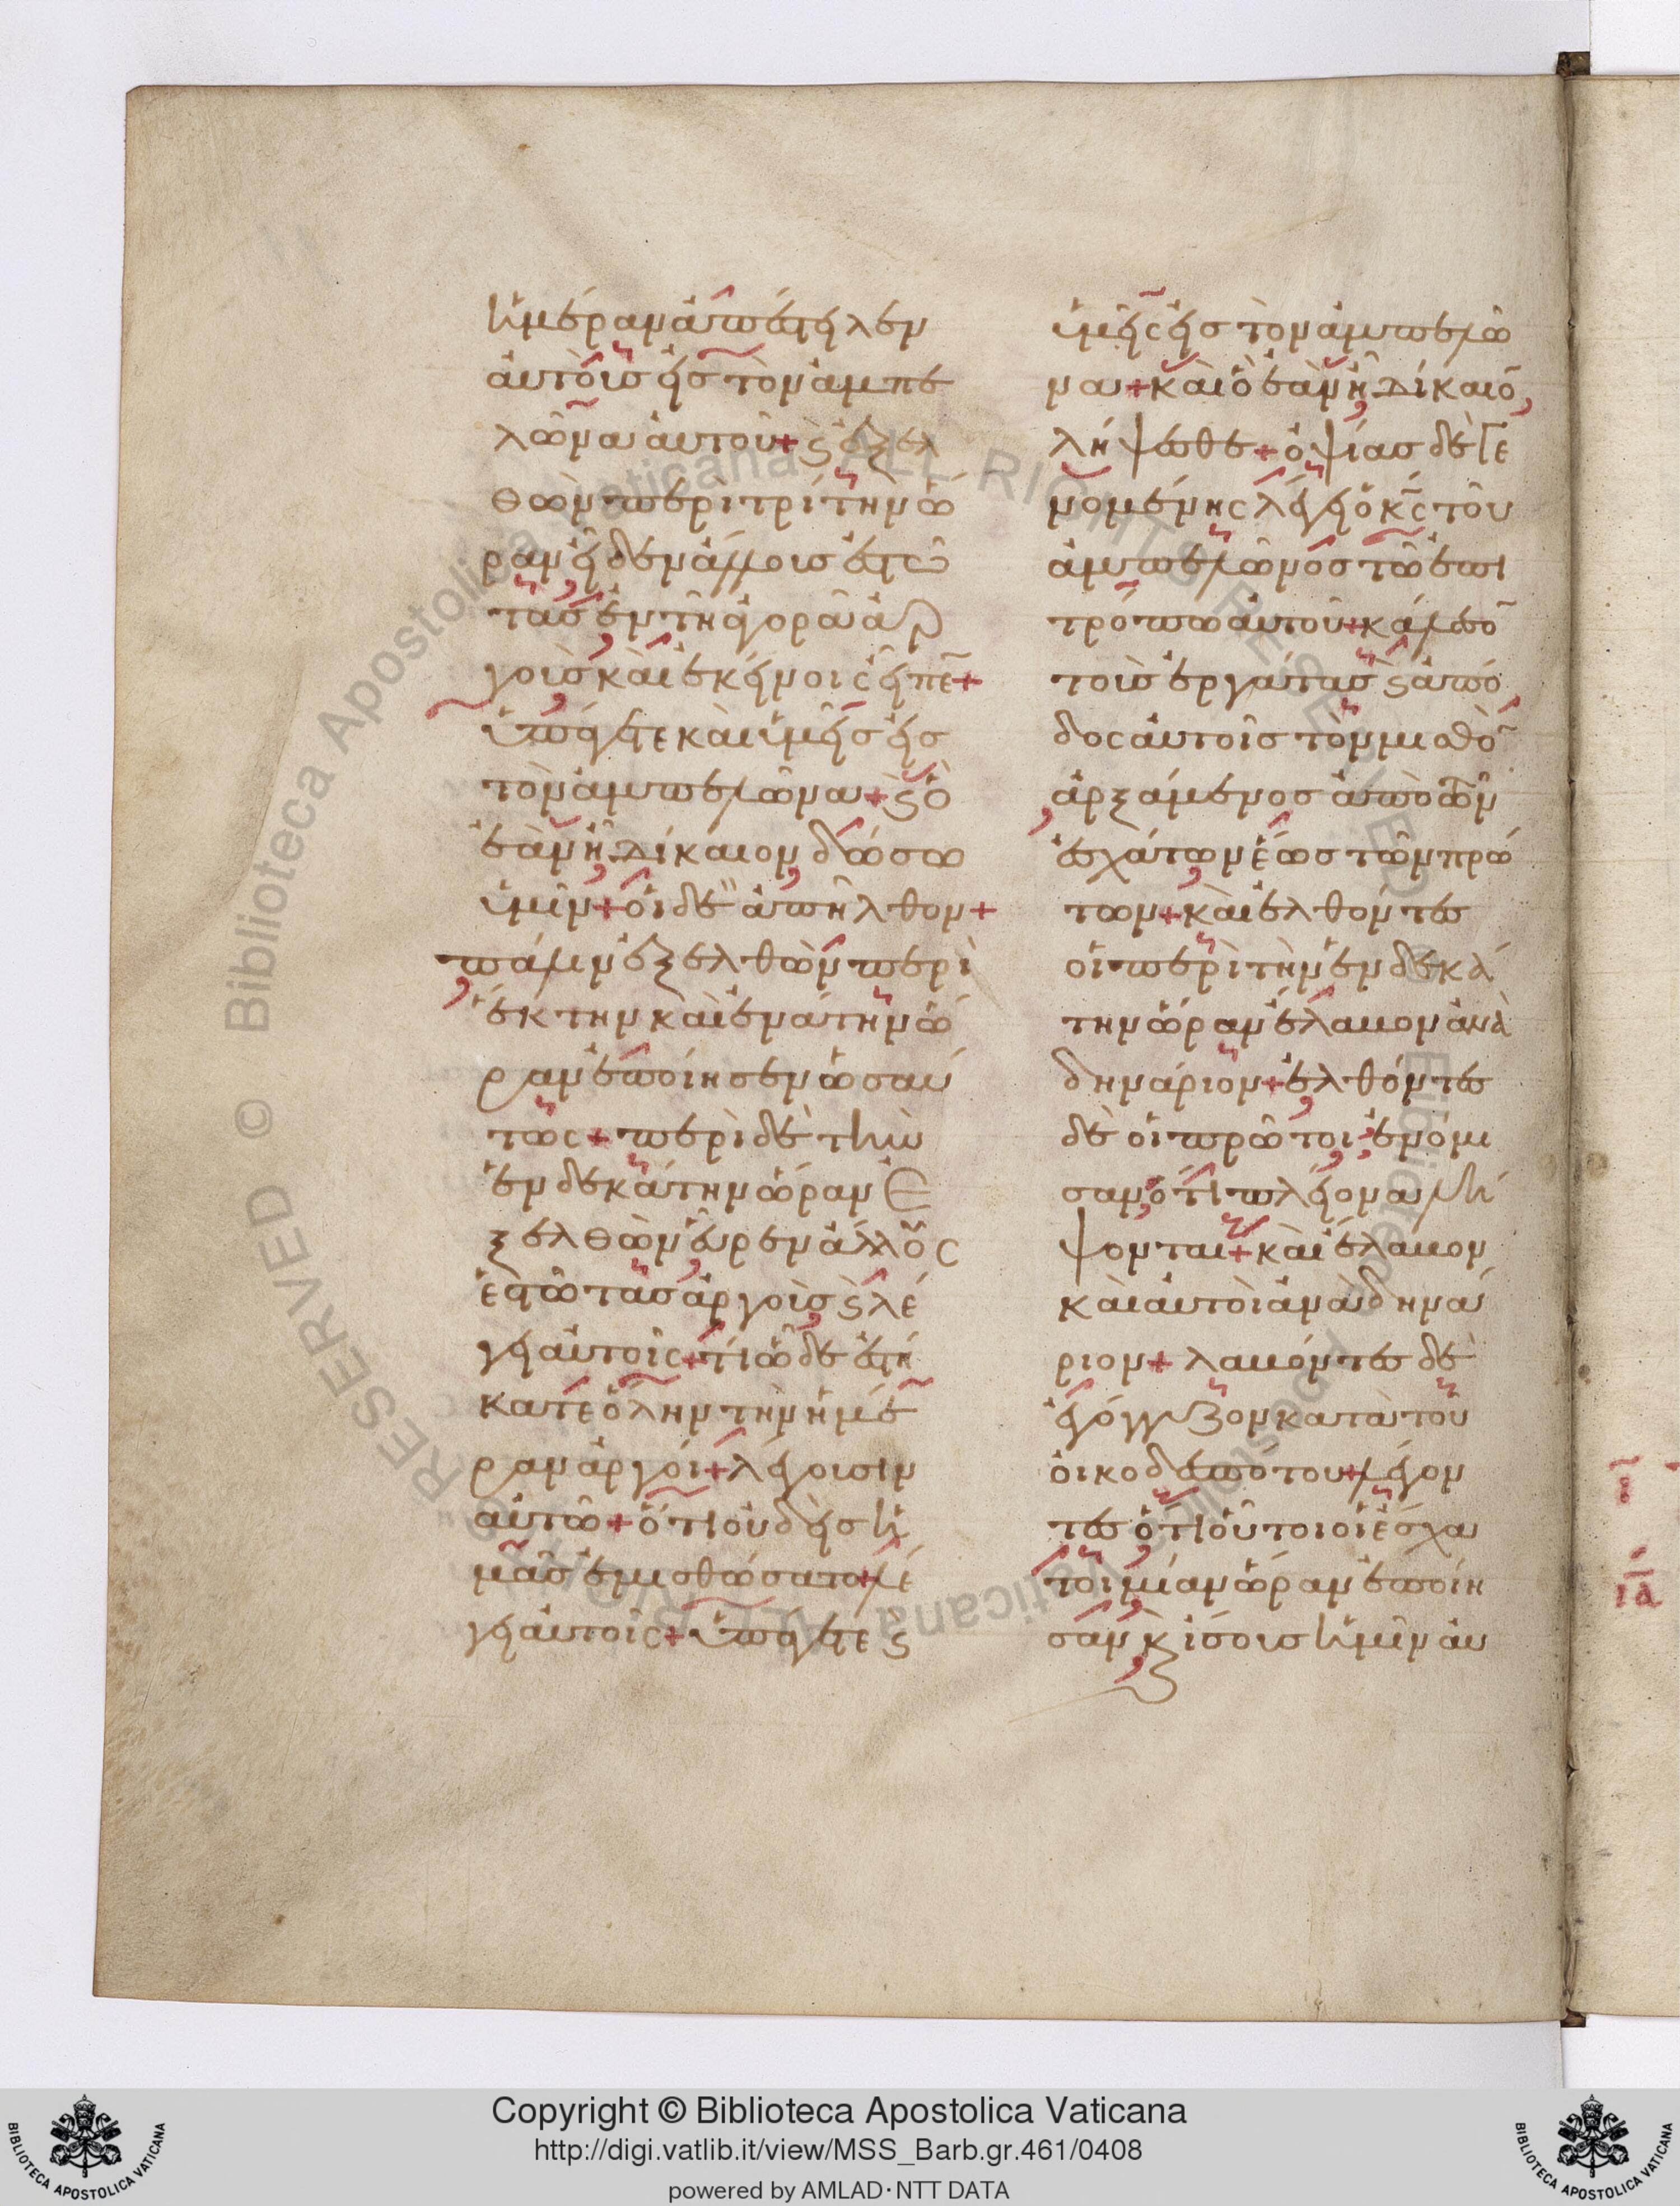 ἡμέραν ἀπέστειλεν
αὐτοὺς εἰς τὸν ἀμπε
λῶνα αὐτοῦ + ϗ ἐξελ
θὼν περὶ τρίτην ὥ
ραν εἶδεν ἄλλους ἑστῶ
τας ἐν τῇ ἀγορᾷ ἀρ
γοὺς καὶ ἐκείνοις εἶπε +
ὑπάγετε καὶ ὑμεῖς εἰς
τὸν ἀμπελῶνα + ϗ ὃ
ἐὰν ἦ δίκαιον δώσω
ὑμῖν + οἱ δὲ ἀπῆλθον +
πάλιν ἐξελθὼν περὶ
ἕκτην καὶ ἐνάτην ὥ
ραν ἐποίησεν ὡσαύ
τως + περὶ δὲ τὴν
ἑνδεκάτην ὥραν ἐ
ξελθὼν εὗρεν ἄλλους
ἑστῶτας ἀργοὺς ϗ λέ
γει αὐτοῖς + τί ὧδε ἑστή
κατε ὅλην τὴν ἡμέ
ραν ἀργοί + λέγουσιν
αὐτῶ + ὅτι οὐδεὶς ἡ
μᾶς ἐμισθώσατο + λέ
γει αὐτοῖς + ὑπάγετε ϗ
ὑμεῖς εἰς τὸν ἀμπελῶ
να + καὶ ὃ ἐὰν ἦ δίκαιον
λήψεσθε + ὀψίας δὲ γε
νομένης λέγει ὁ κς τοῦ
ἀμπελῶνος τῶ ἐπι
τρόπω αὐτοῦ + κάλεσον
τοὺς ἐργάτας ϗ ἀπό
δος αὐτοῖς τὸν μισθὸν
ἀρξάμενος ἀπὸ τῶν
ἐσχάτων ἕως τῶν πρώ
των + καὶ ἐλθόντες
οἱ περὶ τὴν ἑνδεκά
την ὥραν ἔλαβον ἀνὰ
δηνάριον + ἐλθόντες
δὲ οἱ πρῶτοι ἐνόμι
σαν ὅτι πλείονα λή
ψονται + καὶ ἔλαβον
καὶ αὐτοὶ ἀνὰ δηνά
ριον + λαβόντες δὲ
ἐγόγγυζον κατὰ τοῦ
οἰκοδεσπότου + λέγον
τες ὅτι οὗτοι οἱ ἔσχα
τοι μίαν ὥραν ἐποίη
σαν ϗ ἴσους ἡμῖν αὐ
ι
ια
Copyright © Biblioteca Apostolica Vaticana
http://digi.vatlib.it/view/MSS_Barb.gr.461/0408
powered by AMLAD·NTT DATA
BIBLIOTECA APOSTOLICA VATICANA
BIBLIOTECA APOSTOLICA VATICANA